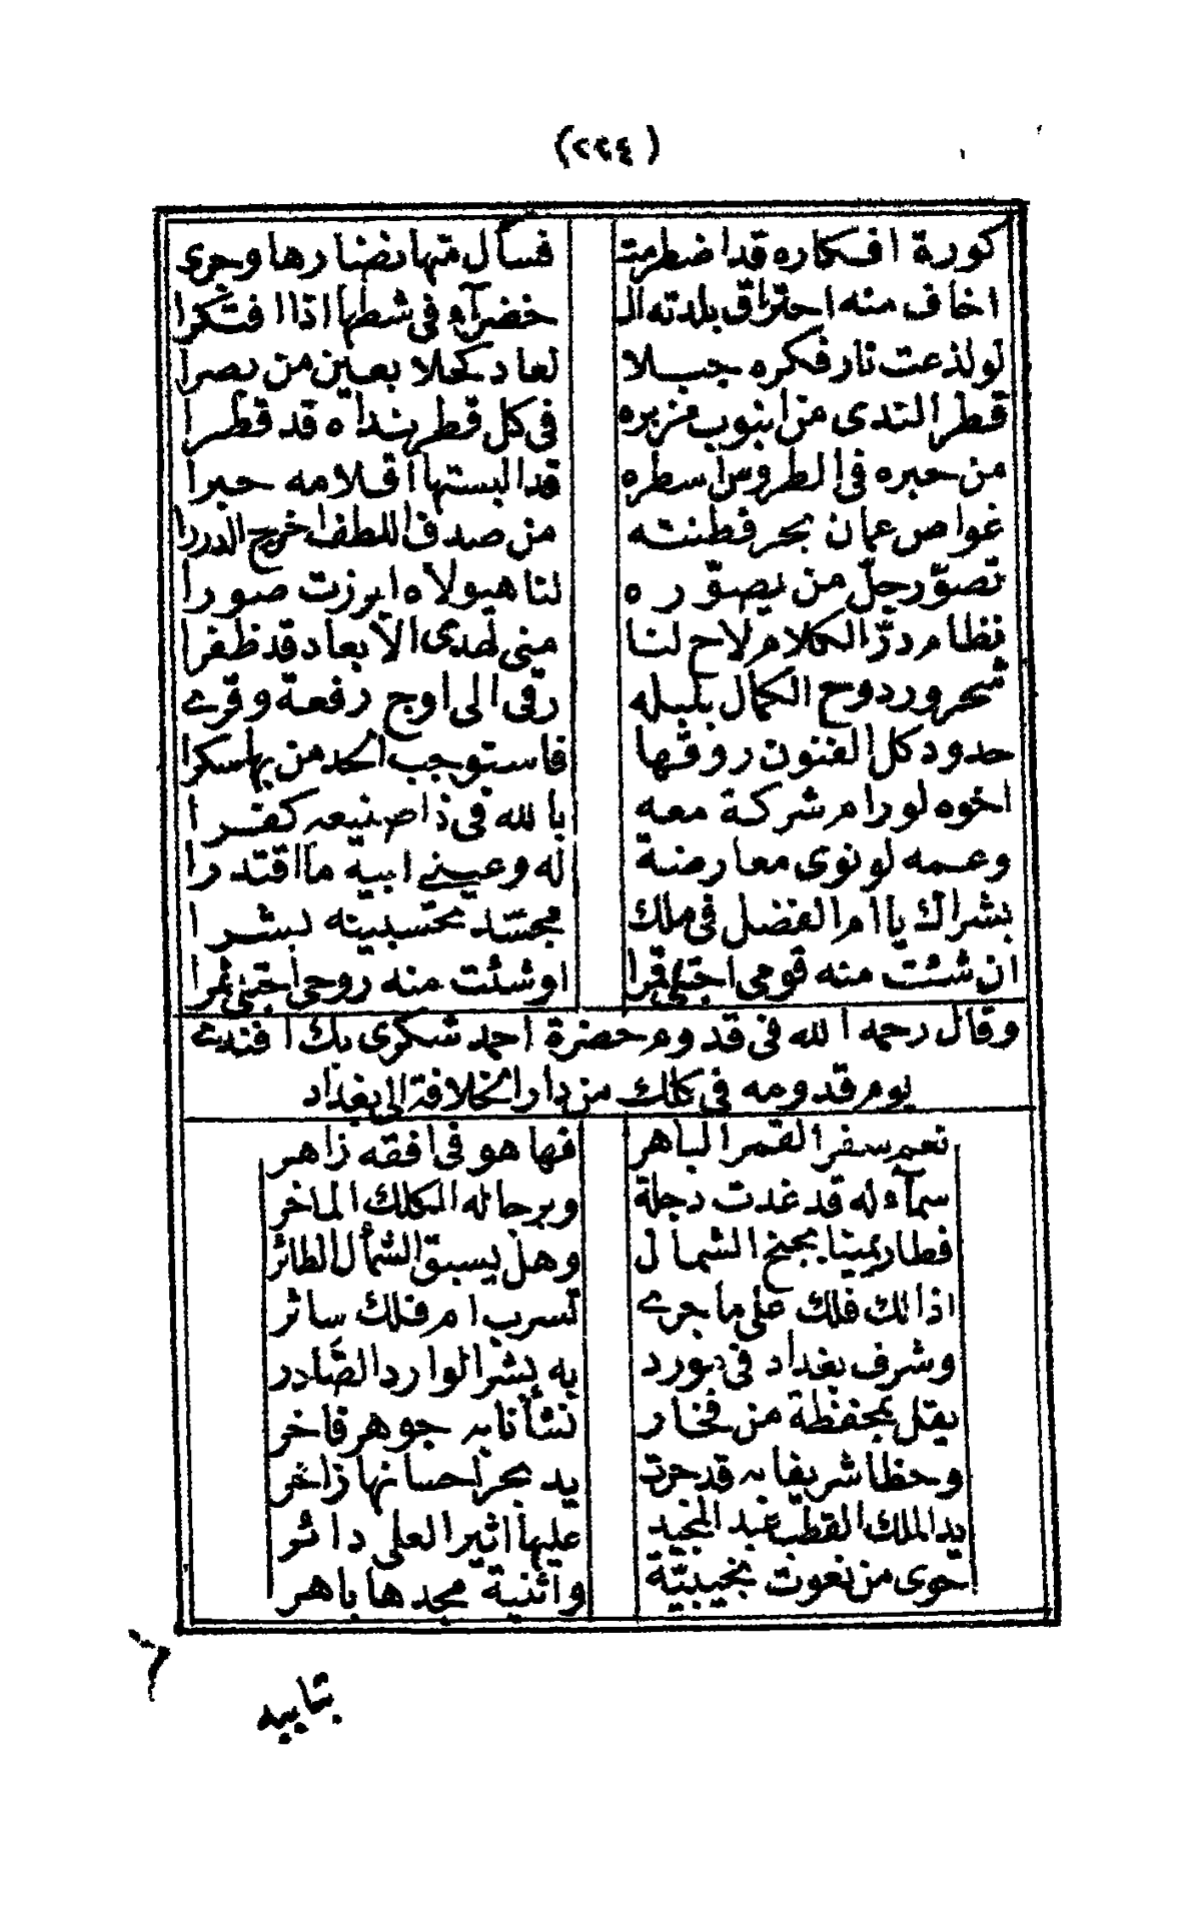 (٢٢٤)
كورة افكاره قد اضطرمت فسال منها نضارها وجرى
اخاف منه احتراق بلدته الـ خضرآء فى شطها اذا افتكرا
لو لذعت نار فكره جبلا لعاد كحلا بعين من بصرا
قطر الندى من انبوب مزبره فى كل قطر نداه قد قطرا
من حبره فى الطروس اسطره قد البستها اقلامه حبرا
غواص عمان بحر فطنته من صدف اللطف اخرج الدررا
تصوّر جلّ من يصوّره لنا هيولاه ابرزت صورا
نظام درّ الكلام لاح لنا منى لهدى الابعاد قد ظفرا
شحرور دوح الكمال بلبله رقى الى اوج رفعة وقرى
حدود كل الفنون روقها فاستوجب الحد من بها سكرا
اخوه لو رام شركة معه بالله فى ذا صنيعه كفرا
وعمه لو نوى معارضة له وعينى ابيه ما اقتدرا
بشراك يا ام الفضل فى ملك مجسّد تحسبينه بشرا
ان شئت منه قومى اجتلى قمرا اوشئت منه روحى اجتنى ثمرا
وقال رحمه الله فى قدوم حضرة احمد شكرى بك افندى
يوم قدومه فى كلك من دار الخلافة الى بغداد
نعيم سفر القمر الباهر فها هو فى افقه زاهر
سمآء له قد غدت دجلة وبرحاله الكلك الماخر
فطار يمينا بجنح الشمال وهل يسبق الشمأل الطائر
اذالك فلك على ما جرى تسرب ام فلك سائر
وشرف بغداد فى بورد به بشر الوارد الصّادر
يقل بمحفظة من فخار نشأنا به جوهر فاخر
وحظا شريفا به قد حرت يد بحر احسانها زاخر
يد الملك القطب عبد المجيد عليها اثير العلى دائر
حوى من نعوت نجيبيّة وآثنية مجدها باهر
بتابيه